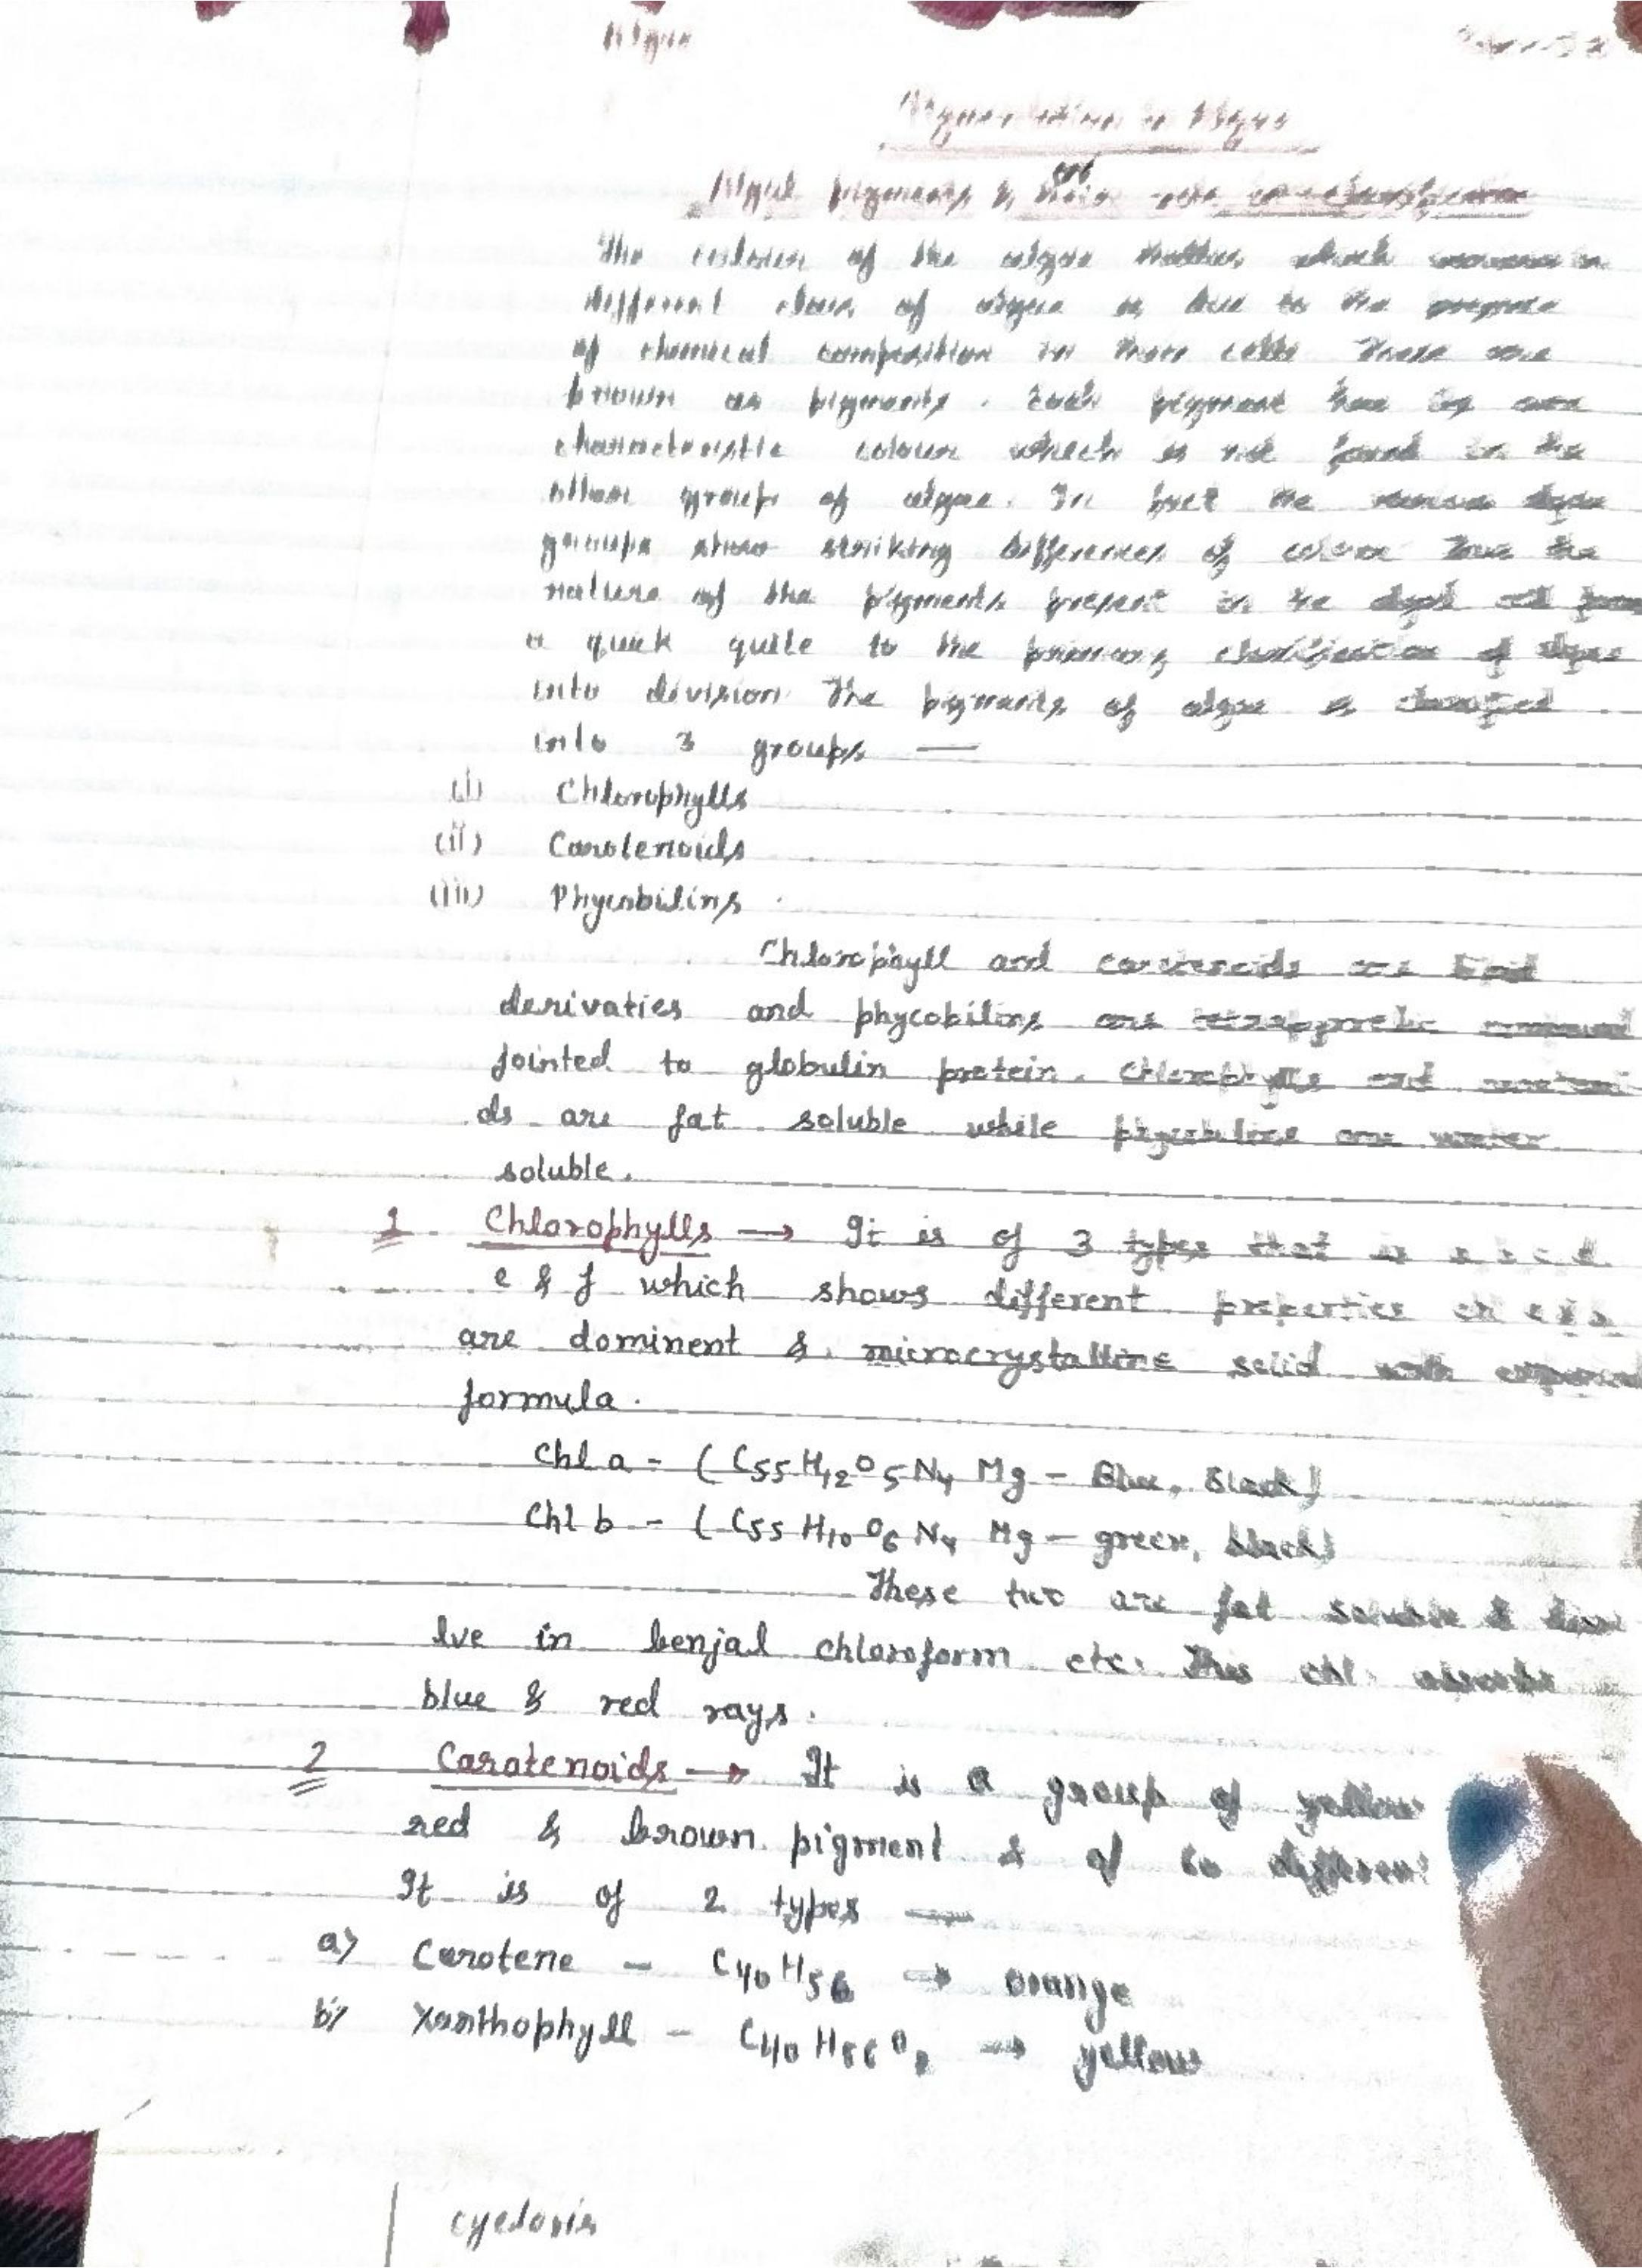 Algae
Pigmentation in Algae
or
Algal pigments & their role in classification
The colour of the algae thallus which in
different class of algae is due to the
of chemical composition in their cells These are
known as pigments. Each pigment has its own
characteristic colour which is not found in the
other group of algae. In fact the various algae
groups show striking differences of colour Thus the
nature of the pigments present in the
a quick quite to the primary classification of algae
into division The pigments of algae is classified
into 3 groups —
(i) Chlorophylls
(ii) Carotenoids
(iii) Phycobilins
Chlorophyll and carotenoids are lipid
derivaties and phycobilins are tetrapyrrolic compound
jointed to globulin protein. Chlorophylls and carotenoi
ds are fat soluble while phycobilins are water
soluble.
1 Chlorophylls → It is of 3 types that is a b c d
e & f which shows different properties ch a & b
are dominent & microcrystalline solid with
formula.
Chl a - (C55H42O5N4 Mg - Blue, Black)
Chl b - (C55H10O6N4 Mg - green, black)
These two are fat soluble &
lve in benjal chloroform etc. This chl. absorbs
blue & red rays.
2 Carotenoids → It is a group of yellow
red & brown pigment & of 60 different
It is of 2 types —
a) Carotene - C40H56 → orange
b) Xanthophyll - C40H56O2 → yellow
cyclosis